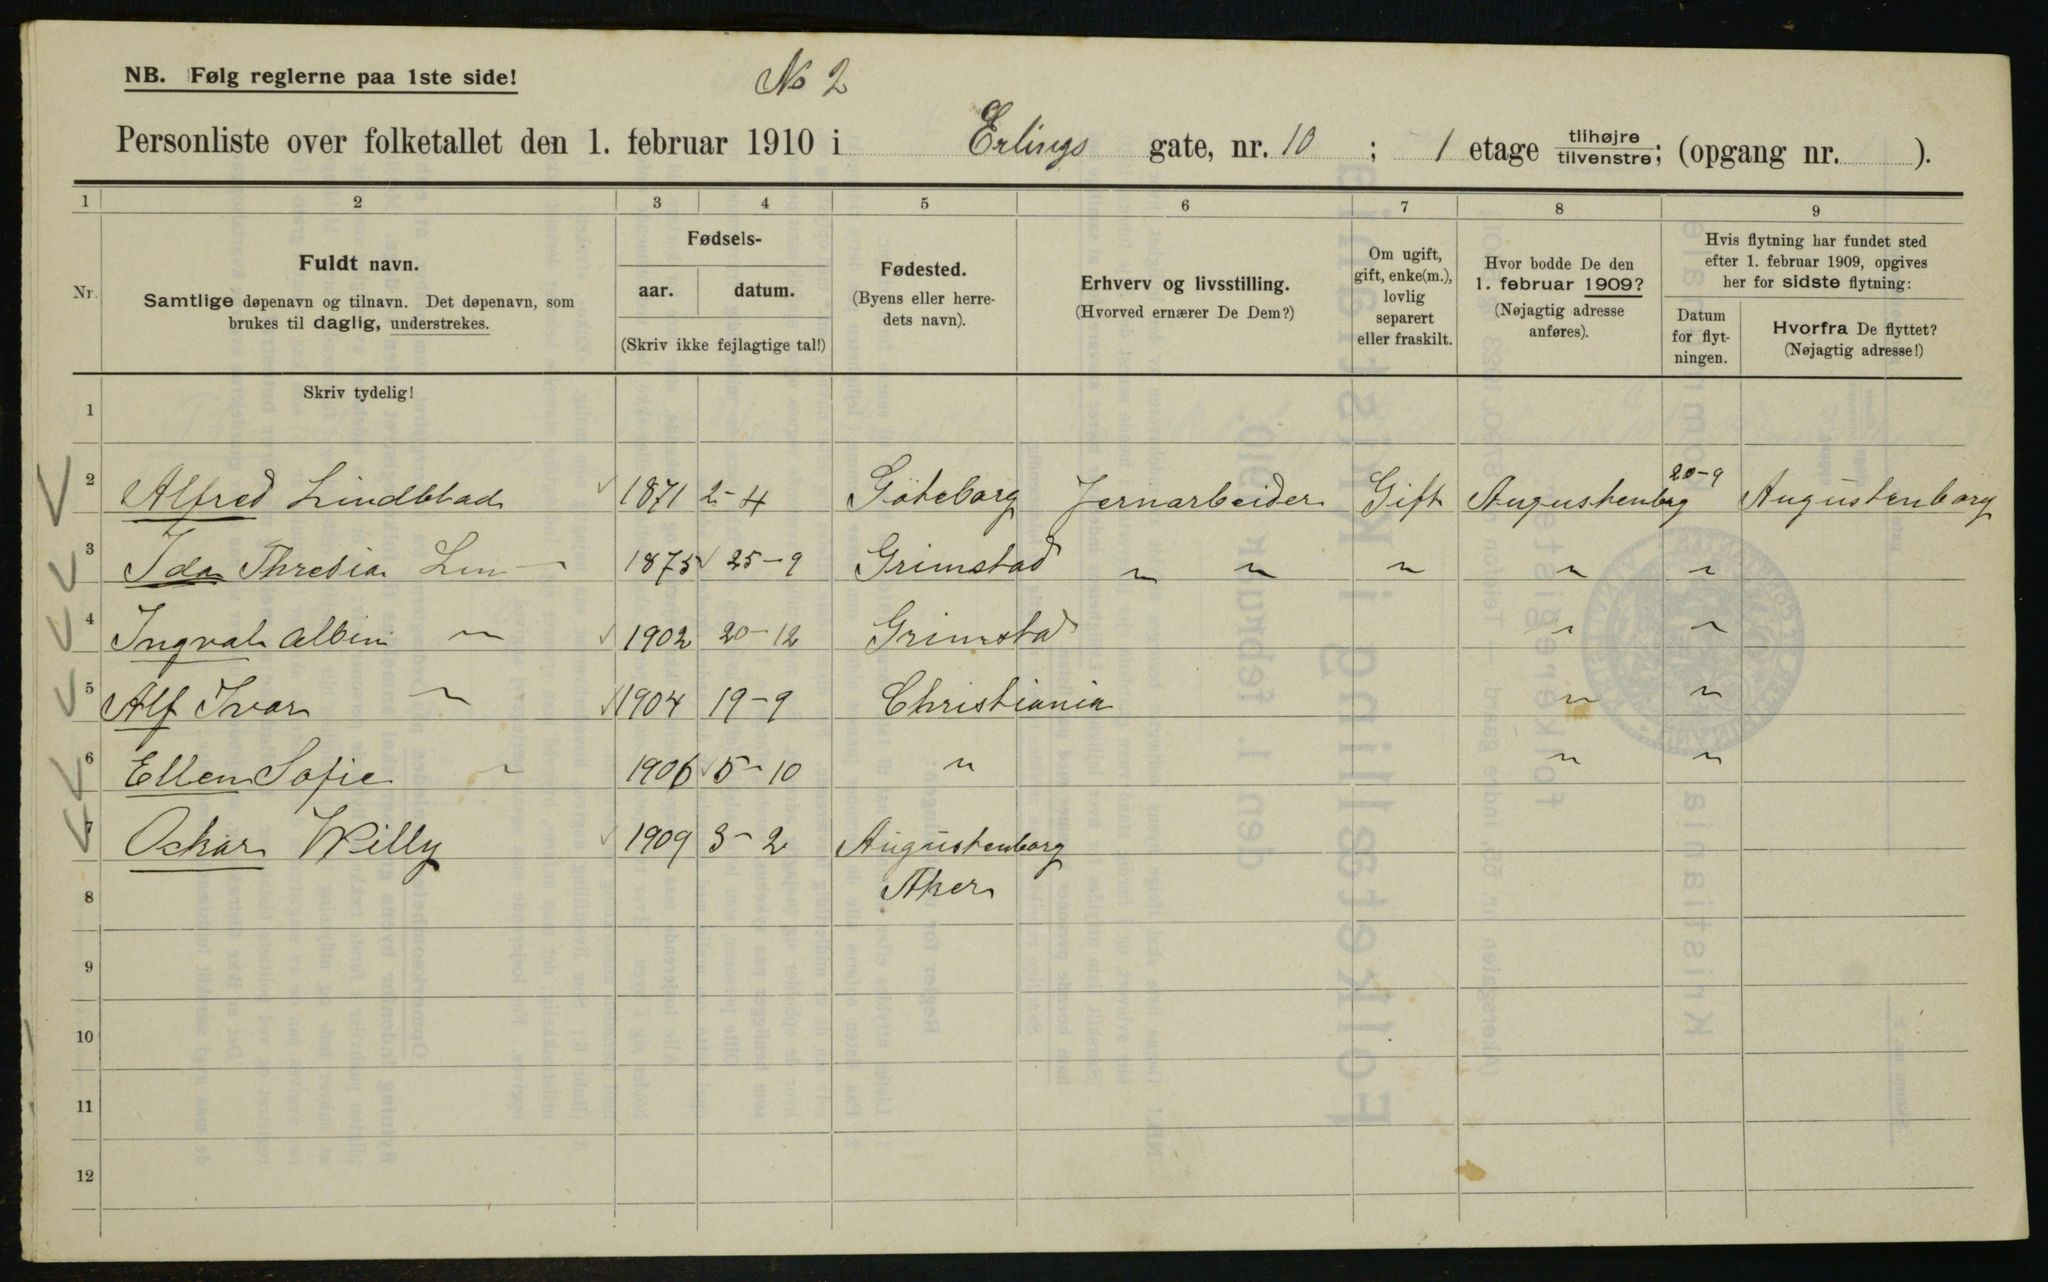 NB. Følg reglerne paa 1ste side!
No 2
Personliste over folketallet den 1. februar 1910 i Erlings gate, nr. 10 ; 1 etage tilhøjre tilvenstre; (opgang nr. ).
1 2 3 4 5 6 7 8 9
Nr.
Fuldt navn.
Samtlige døpenavn og tilnavn. Det døpenavn, som
brukes til daglig, understrekes.
Fødsels-
aar. datum.
(Skriv ikke fejlagtige tal!)
Fødested.
(Byens eller herre-
dets navn).
Erhverv og livsstilling.
(Hvorved ernærer De Dem?)
Om ugift,
gift, enke(m.),
lovlig
separert
eller fraskilt.
Hvor bodde De den
1. februar 1909?
(Nøjagtig adresse
anføres).
Hvis flytning har fundet sted
efter 1. februar 1909, opgives
her for sidste flytning:
Datum
for flyt-
ningen.
Hvorfra De flyttet?
(Nøjagtig adresse!)
Skriv tydelig!
1
2 Alfred Lindblad 1871 2-4 Göteborg Jernarbeider Gift Augustenborg 20-9 Augustenborg
3 Ida Thresia Lin 1875 25-9 Grimstad " " " " "
4 Ingval Albin " 1902 20-12 Grimstad " "
5 Alf Ivar " 1904 19-9 Christiania " "
6 Ellen Sofie " 1906 5-10 " " "
7 Oskar Willy 1909 3-2 Augustenborg
8 Aker
9
10
11
12